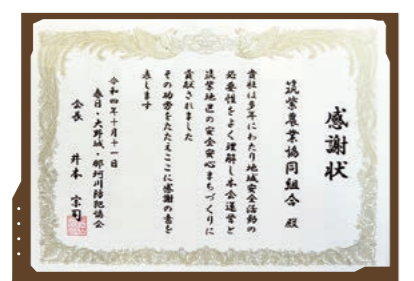 感謝状
筑紫農業協同組合 殿
貴社は多年にわたり地域安全活動の
必要性をよく理解し本会運営と
筑紫地区の安全安心まちづくりに
貢献されました
その功労をたたえここに感謝の意を
表します
令和四年十月十一日
春日・大野城・那珂川防犯協会
会長 井本 宗司